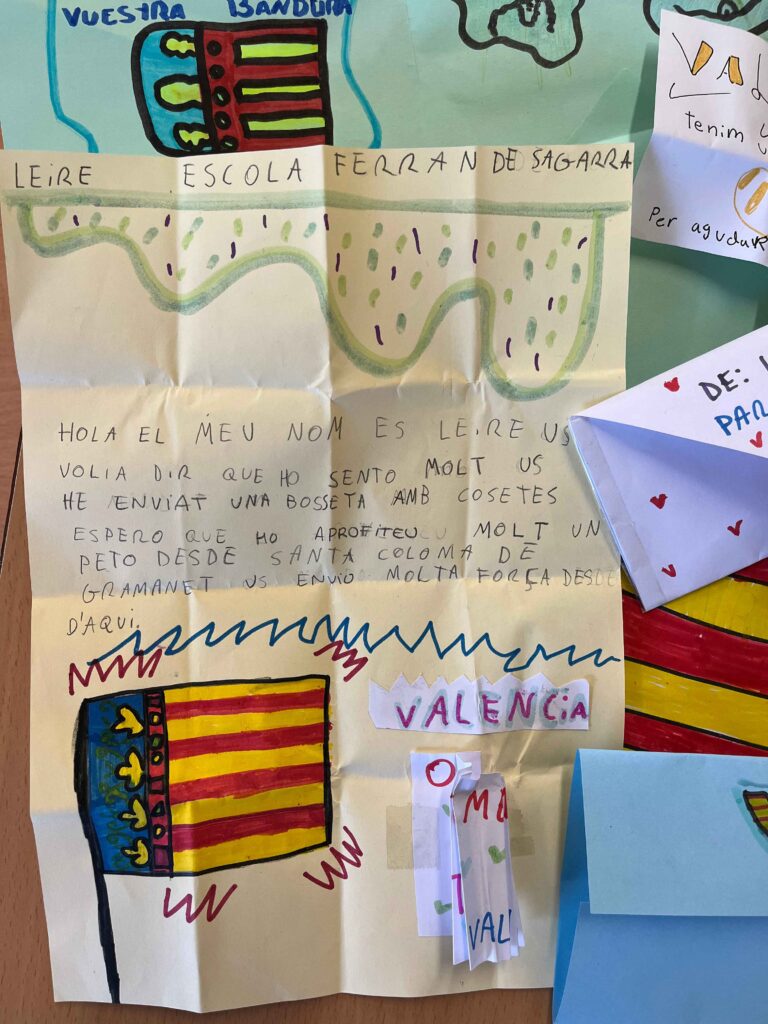 VUESTRA BANDURA
LEIRE ESCOLA FERRAN DE SAGARRA
HOLA EL MEU NOM ES LEIRE US
VOLIA DIR QUE HO SENTO MOLT US
HE ENVIAT UNA BOSSETA AMB COSETES
ESPERO QUE HO APROFITEU MOLT UN
PETO DESDE SANTA COLOMA DE
GRAMANET US ENVIO MOLTA FORÇA DESDE
D'AQUI.
VALENCIA
VAL
tenim
Per agudar
DE:
PAR